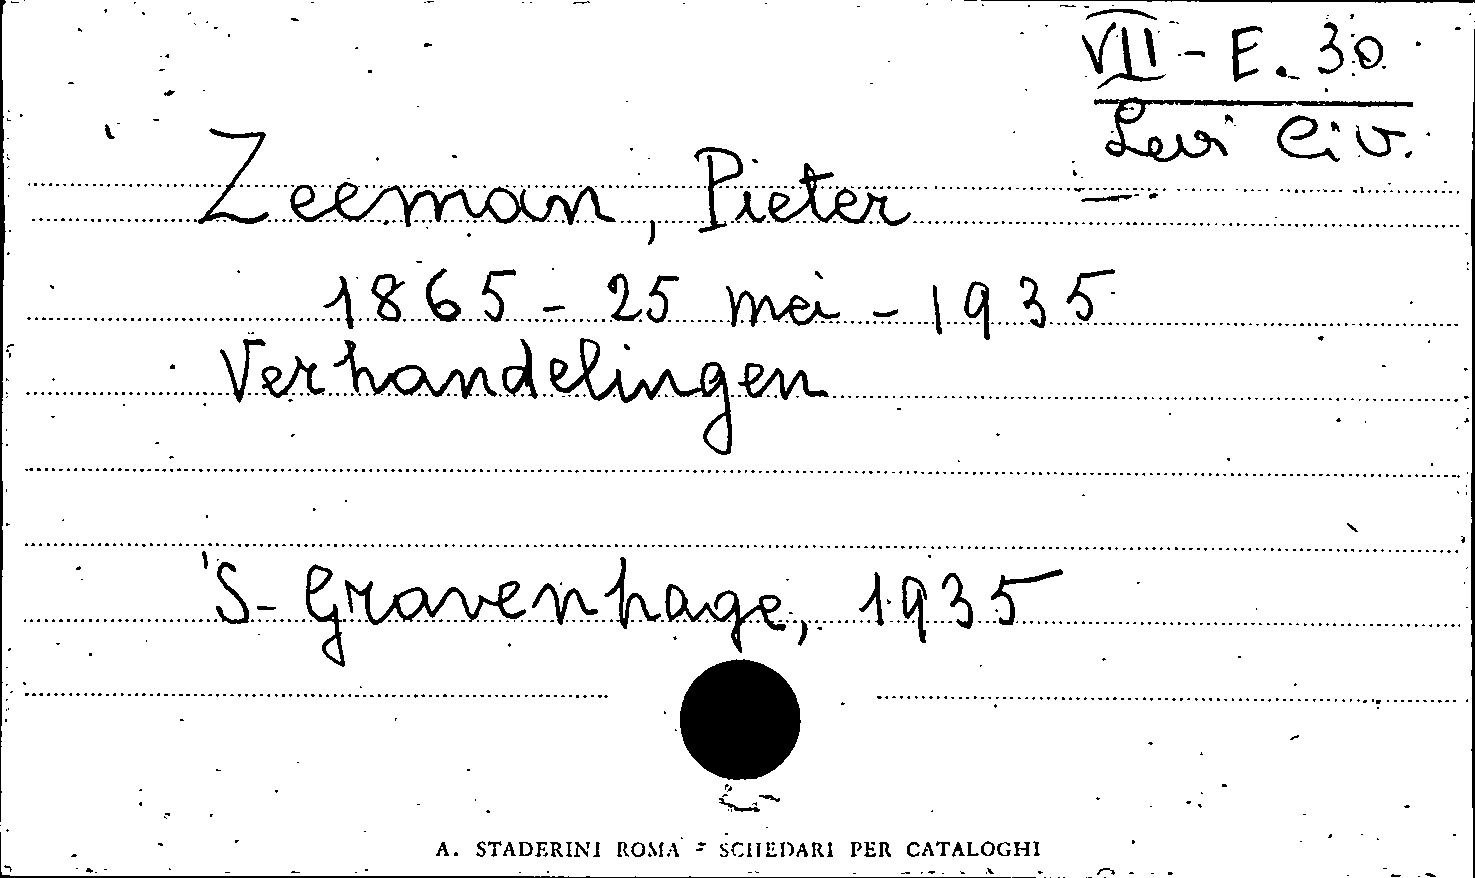 VII - E. 30
Levi Civ.
Zeeman, Pieter
1865 - 25 mei - 1935
Verhandelingen
'S-Gravenhage, 1935
A. STADERINI ROMA - SCHEDARI PER CATALOGHI